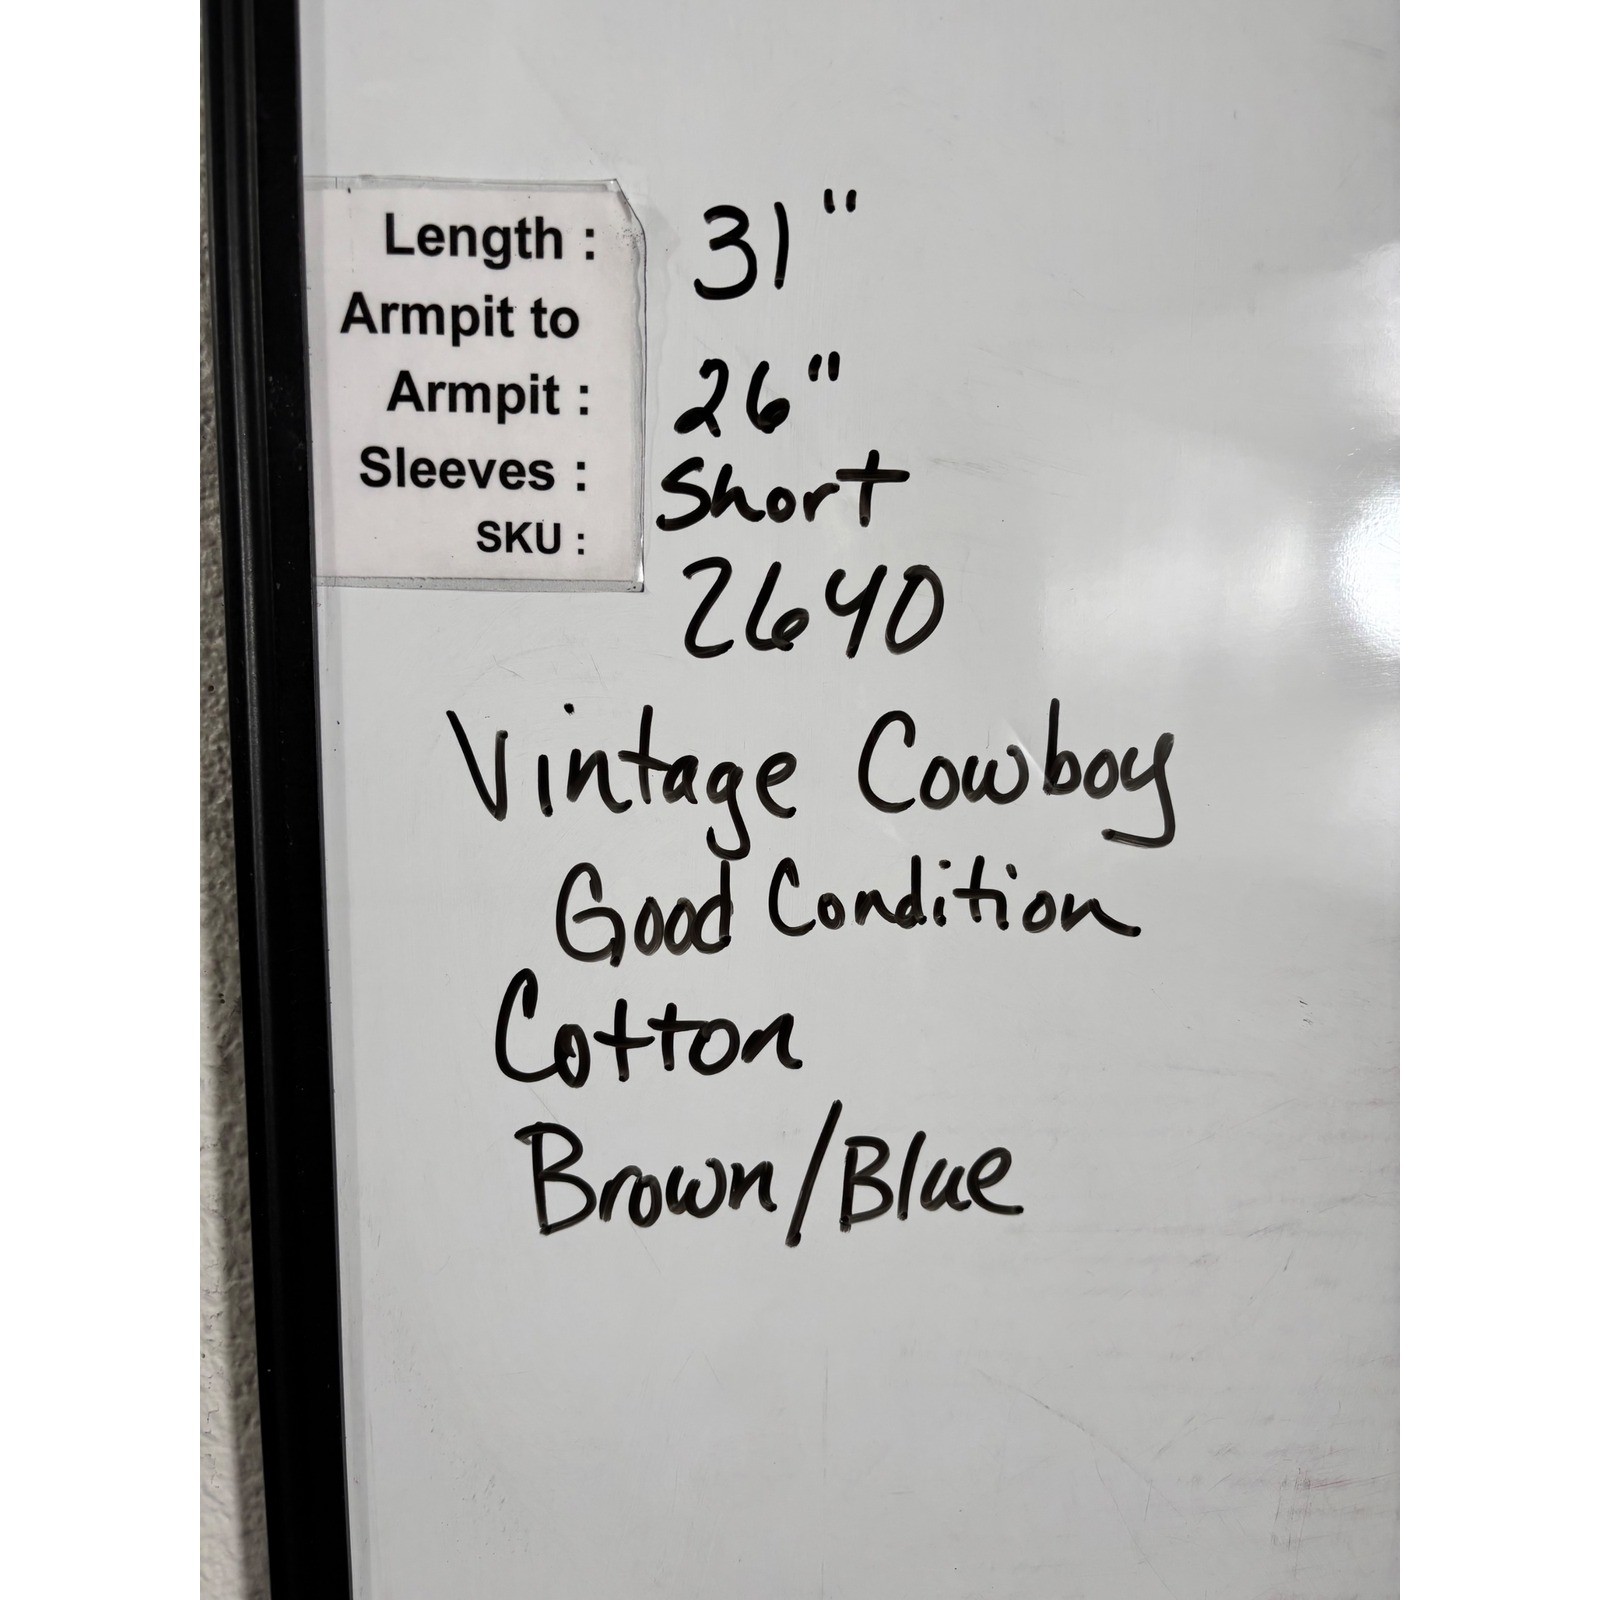 Length : 31"
Armpit to
Armpit : 26"
Sleeves : Short
SKU : 2640
Vintage Cowboy
Good Condition
Cotton
Brown/Blue